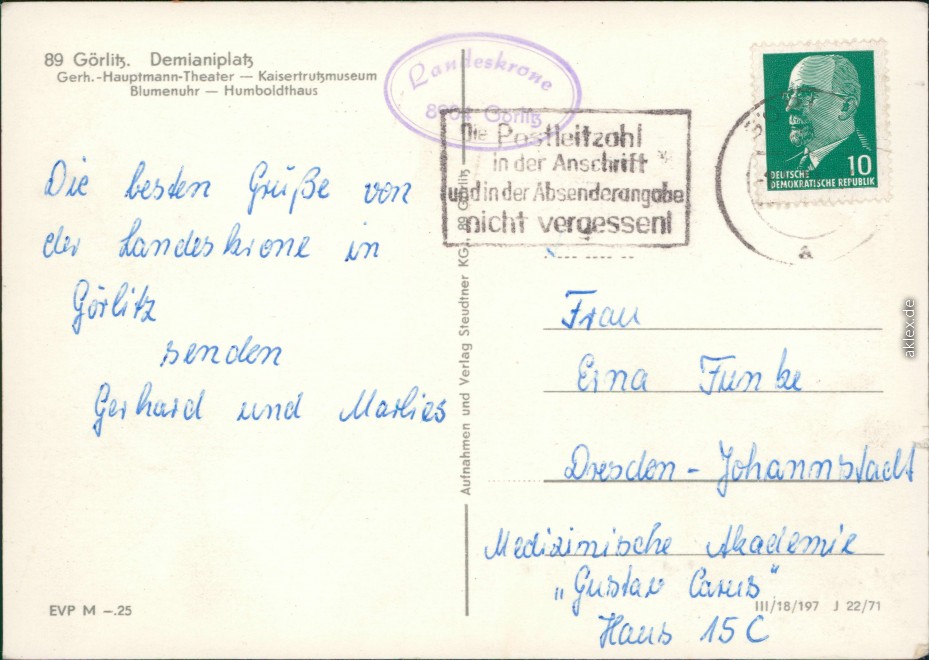 89 Görlitz. Demianiplatz
Gerh.-Hauptmann-Theater — Kaisertrutzmuseum
Blumenuhr — Humboldthaus
Landeskrone
8904 Görlitz
Die Postleitzahl
in der Anschrift
und in der Absenderangabe
nicht vergessen!
10
DEUTSCHE
DEMOKRATISCHE REPUBLIK
Die besten Grüße von
der Landeskrone in
Görlitz
senden
Gerhard und Marlies
Aufnahmen und Verlag Steudtner KG., 89 Görlitz
Frau
Erna Funke
Dresden - Johannstadt
Medizinische Akademie
„Gustav Carus"
Haus 15C
EVP M –.25
III/18/197 J 22/71
aklex.de